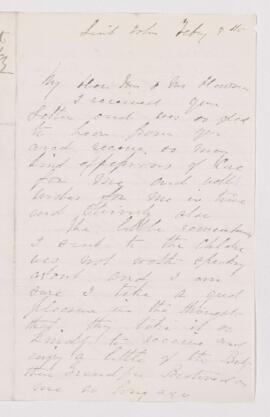 Saint John Feby 8th
My Dear Mr & Mrs
I received your
letter and was so glad
to hear from you
and receive so many
kind expressions of
for me and
wishes for me in time
and Eternity also
the little remembrance
I sent to the
was not worth speaking
about and I am
sure I take a great
pleasure in the thought
that they like it so
kindly to receive and
enjoy a little of the
then Grandpa Bestowed on
me so long ago